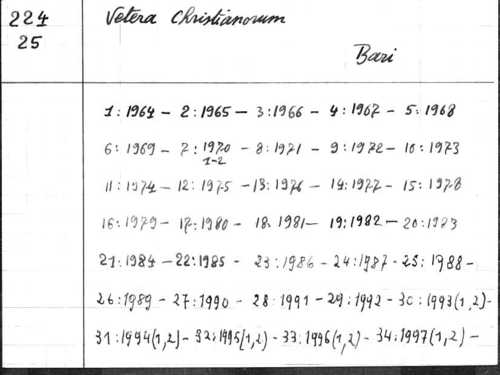 224 Vetera Christianorum
25
Bari
1:1964 - 2:1965 - 3:1966 - 4:1967 - 5:1968
6:1969 - 7:1970 - 8:1971 - 9:1972 - 10:1973
1-2
11:1974 - 12:1975 - 13:1976 - 14:1977 - 15:1978
16:1979 - 17:1980 - 18:1981 - 19:1982 - 20:1983
21:1984 - 22:1985 - 23:1986 - 24:1987 - 25:1988 -
26:1989 - 27:1990 - 28:1991 - 29:1992 - 30:1993(1,2)-
31:1994(1,2) - 32:1995(1,2) - 33:1996(1,2) - 34:1997(1,2) -